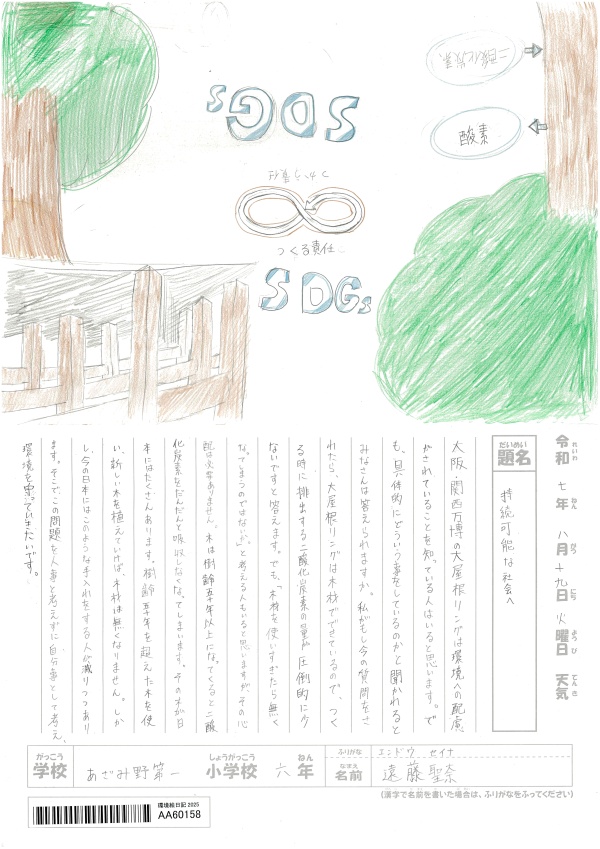 SDGs
二酸化炭素
酸素
つかう責任
つくる責任
SDGs
令和 七年 八月 十九日 火曜日 天気
れいわ ねん がつ にち ようび てんき
だいめい
題名
持続可能な社会へ
大阪・関西万博の大屋根リングは環境への配慮
がされていることを知っている人はいると思います。で
も、具体的にどういう事をしているのかと聞かれると
みなさんは答えられますか。私がもし今の質問をさ
れたら、大屋根リングは木材でできているので、つく
る時に排出する二酸化炭素の量が圧倒的に少
ないですと答えます。でも、「木材を使いすぎたら無く
なってしまうのではないか。」と考える人もいると思いますが、その心
配は必要ありません。木は樹齢五十年以上になってくると二酸
化炭素をだんだんと吸収しなくなってしまいます。その木が日
本にはたくさんあります。樹齢五十年を超えた木を使
い、新しい木を植えていけば、木材は無くなりません。しか
し、今の日本にはこのような手入れをする人が減りつつあり
ます。そこでこの問題を人事と考えずに自分事として考え、
環境を守っていきたいです。
がっこう しょうがっこう ねん
学校 あざみ野第一 小学校 六年
ふりがな エンドウ セイナ
なまえ
名前 遠藤聖奈
(漢字で名前を書いた場合は、ふりがなをふってください)
環境絵日記 2025
AA60158